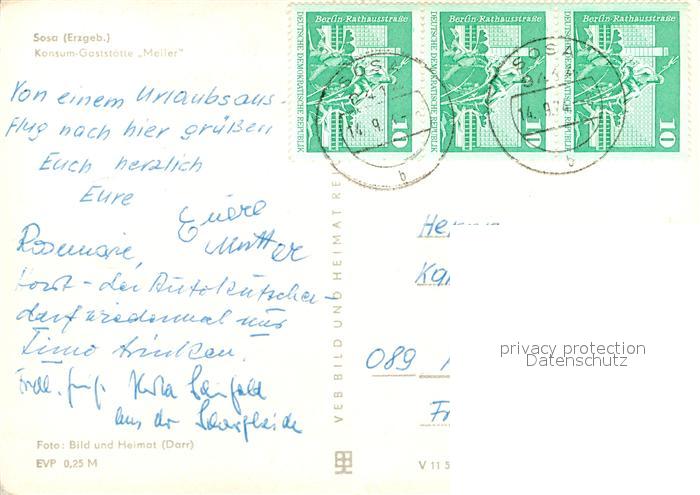 Sosa (Erzgeb.)
Konsum-Gaststätte „Meiler"
Von einem Urlaubsaus-
flug nach hier grüßen
Euch herzlich
Eure
Eure
Mutter
Rosemarie,
Horst - der Autokutscher -
darf wiedermal nur
Limo trinken.
aus der
Foto: Bild und Heimat (Darr)
EVP 0,25 M
VEB BILD UND HEIMAT REI
V 11 5
Berlin-Rathausstraße
DEUTSCHE DEMOKRATISCHE REPUBLIK
10
Berlin-Rathausstraße
DEUTSCHE DEMOKRATISCHE REPUBLIK
10
Berlin-Rathausstraße
DEUTSCHE DEMOKRATISCHE REPUBLIK
10
SOSA
14.9.
b
SOSA
9412
14.9.74
b
He
Ka
089
Fr
privacy protection
Datenschutz